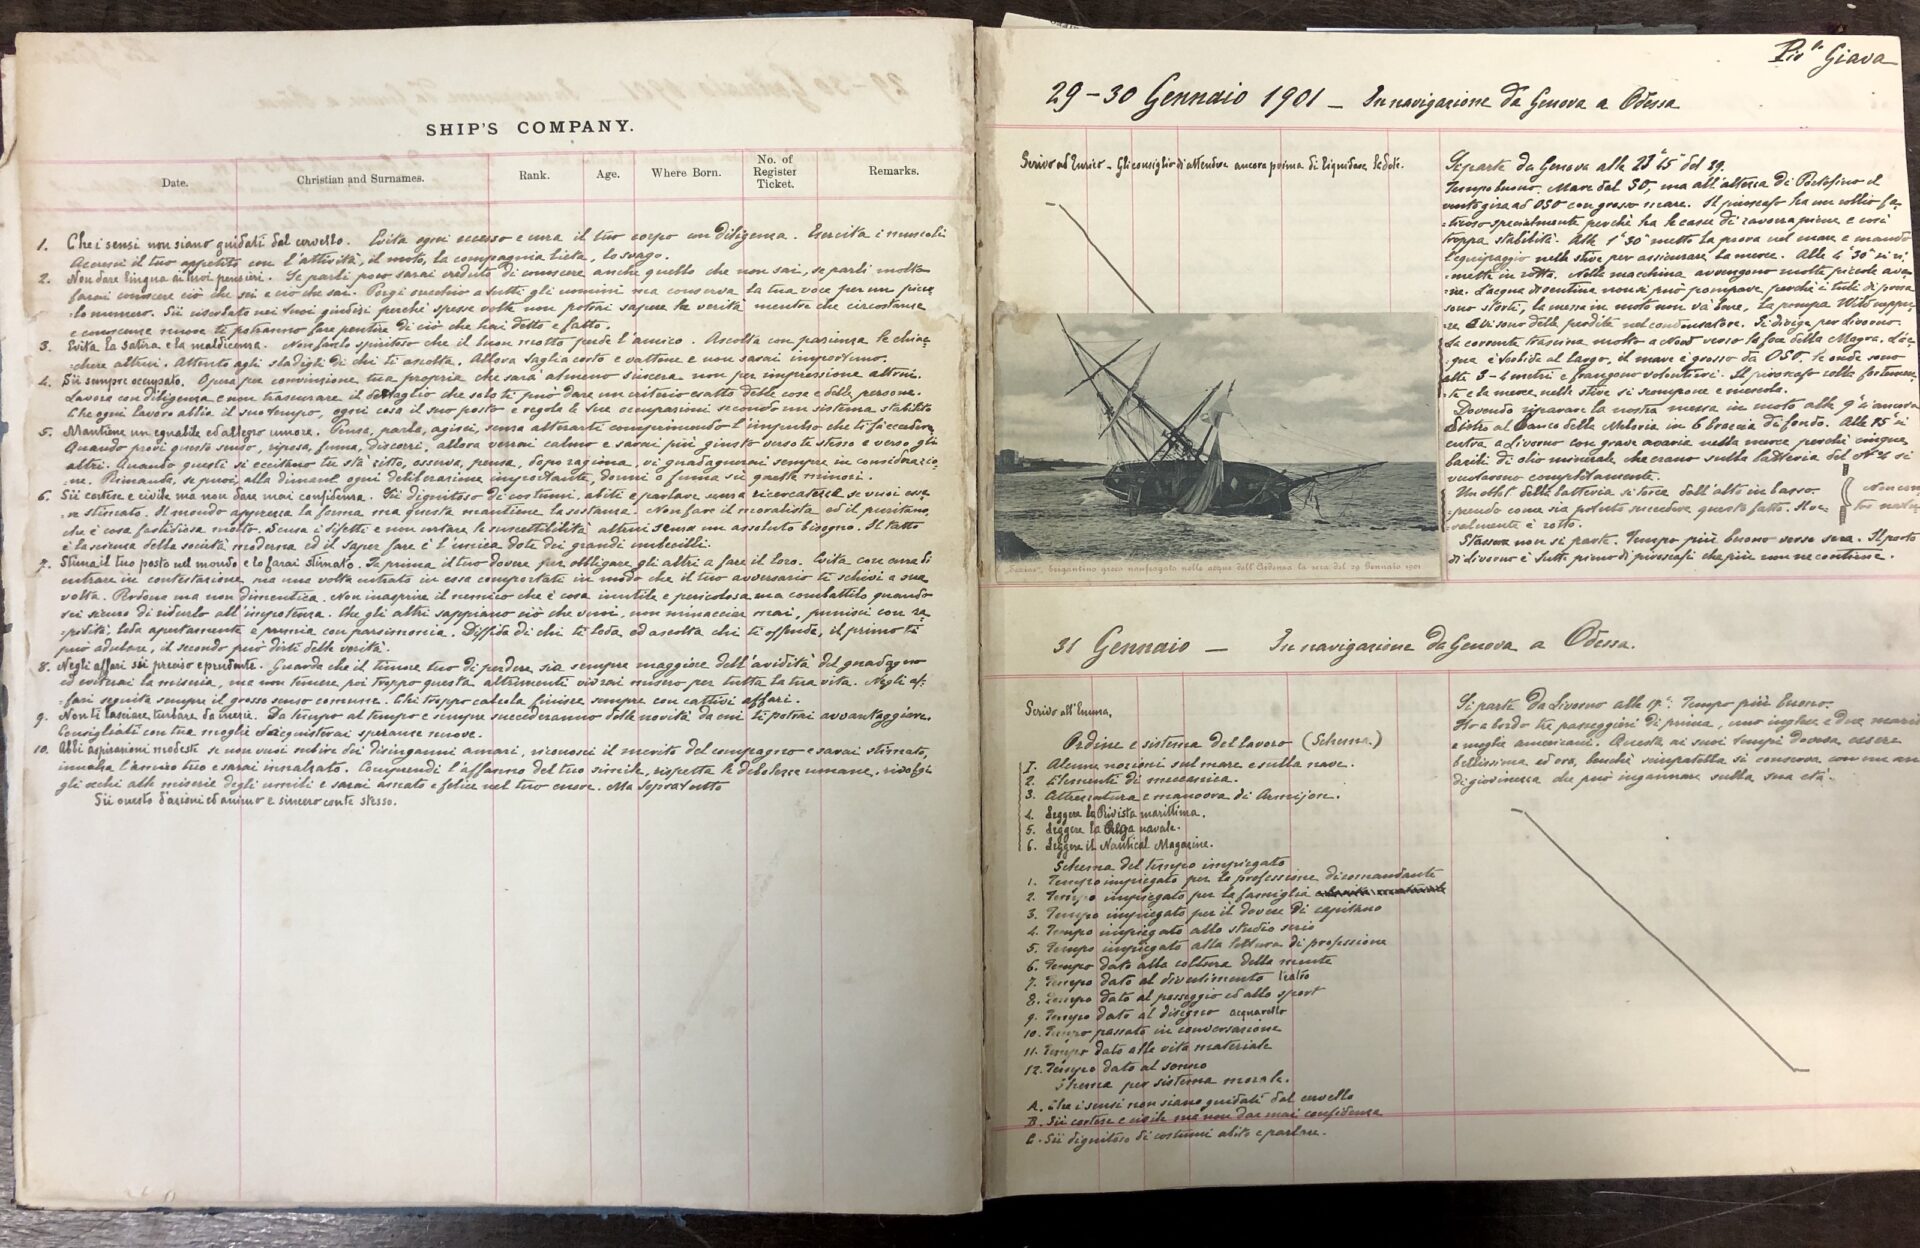 SHIP'S COMPANY.
Date. Christian and Surnames. Rank. Age. Where Born. No. of Register Ticket. Remarks.
1. Che i sensi non siano guidati dal cervello. Evita ogni eccesso e cura il tuo corpo con diligenza. Esercita i muscoli
Accresci il tuo appetito con l'attività, il moto, la compagnia lieta, lo svago.
2. Non dare lingua ai tuoi pensieri. Se parli poco sarai creduto di conoscere anche quello che non sai, se parli molto
farai conoscere ciò che sei e ciò che sai. Porgi orecchio a tutti gli uomini ma conserva la tua voce per un picco-
-lo numero. Sii riservato nei tuoi giudizi perchè spesse volte non potrai sapere la verità mentre che circostanze
e conoscenze nuove ti potranno fare pentire di ciò che hai detto e fatto.
3. Evita la satira e la maldicenza. Non farlo spiritoso che il buon motto perde l'amico. Ascolta con pazienza le chiac-
-chere altrui. Attento agli sbadigli di chi ti ascolta. Allora taglia corto e vattene e non sarai importuno.
4. Sii sempre occupato. Opera per convinzione tua propria che sarà almeno sincera non per impressione altrui.
Lavora con diligenza e non trascurare il dettaglio che solo ti può dare un criterio esatto delle cose e delle persone.
Che ogni lavoro abbia il suo tempo, ogni cosa il suo posto e regola le tue occupazioni secondo un sistema stabilito
5. Mantiene un eguabile ed allegro umore. Pensa, parla, agisci, senza alterarti comprimendo l'impulso che ti fa
Quando provi questo senso, riposa, fuma, discorri, allora verrai calmo e sarai più giusto verso te stesso e verso gli
altri. Quando questi si eccitano tu stà zitto, osserva, pensa, dopo ragiona, vi guadagnerai sempre in considerazio-
-ne. Rimanda, se puoi, alla dimane ogni deliberazione importante, dormi o fuma su quelle minori.
6. Sii cortese e civile ma non dare mai confidenza. Sii dignitoso di costumi, abiti e parlare senza ricercatezza se vuoi esse-
re stimato. Il mondo apprezza la forma ma questa mantiene la sostanza. Non fare il moralista od il puritano,
che è cosa fastidiosa molto. Scusa i difetti e non urtare le suscettibilità altrui senza un assoluto bisogno. Il tatto
è la scienza della società moderna ed il saper fare è l'unica dote dei grandi imbecilli.
7. Stima il tuo posto nel mondo e lo farai stimato. Fa prima il tuo dovere per obbligare gli altri a fare il loro. Evita con cura di
entrare in contestazione ma una volta entrato in essa comportati in modo che il tuo avversario ti schivi a sua
volta. Perdona ma non dimentica. Non inasprire il nemico che è cosa inutile e pericolosa ma combattilo quando
sei sicuro di ridurlo all'impotenza. Che gli altri sappiano ciò che vuoi, non minacciar mai, punisci con ra-
-pidità, loda apertamente e premia con parsimonia. Diffida di chi ti loda ed ascolta chi ti offende, il primo ti
può adulare, il secondo può dirti delle verità.
8. Negli affari sii preciso e prudente. Guarda che il timore tuo di perdere sia sempre maggiore dell'avidità del guadagno
ed eviterai la miseria, ma non temere poi troppo questa altrimenti vivrai misero per tutta la tua vita. Negli af-
-fari seguita sempre il grosso senso comune. Chi troppo calcola finisce sempre con cattivi affari.
9. Non ti lasciare turbare da inezie. Da tempo al tempo e sempre succederanno delle novità da cui ti potrai avvantaggiare.
Consigliati con tua moglie ed acquisterai speranze nuove.
10. Abbi aspirazioni modeste se non vuoi subire dei disinganni amari, riconosci il merito del compagno e sarai stimato,
innalza l'amico tuo e sarai innalzato. Comprendi l'affanno del tuo simile, rispetta le debolezze umane, rivolgi
gli occhi alle miserie degli umili e sarai amato e felice nel tuo cuore. Ma sopratutto
Sii onesto d'azioni ed animo e sincero con te stesso.
Pir° Giava
29-30 Gennaio 1901 - In navigazione da Genova a Odessa
Scrivo ad Enrico - Gli consiglio di attendere ancora prima di liquidare la dote.
Si parte da Genova alle 23h 15m del 29.
Tempo buono. Mare dal SO, ma all'altezza di Portofino il
vento gira ad OSO con grosso mare. Il piroscafo ha un rollio fa-
-ticoso specialmente perchè ha le casse di zavorra piene e così
troppa stabilità. Alle 1h 30m metto la prora nel mare e mando
l'equipaggio nelle stive per assicurare la merce. Alle 4h 30m si ri-
-mette in rotta. Nella macchina avvengono molte piccole ava-
-rie. L'acqua di sentina non si può pompare perchè i tubi di presa
sono storti, la messa in moto non và bene, la pompa
re e vi sono delle perdite nel condensatore. Si dirige per Livorno.
La corrente trascina molto a Nord verso la foce della Magra. L'ac-
qua è torbida al largo, il mare è grosso da OSO, le onde sono
alte 3-4 metri e frangono volentieri. Il piroscafo rolla fortemen-
-te e la merce nelle stive si scompone e mescola.
Dovendo riparare la nostra messa in moto alle 9h si ancora
dietro al banco della Meloria in 6 braccia di fondo. Alle 15h si
entra a Livorno con grave avaria nella merce perchè cinque
barili di olio minerale che erano sulla batteria del N°4 si
vuotarono completamente.
Un della batteria si torse dall'alto in basso.
-prendo come sia potuto succedere questo fatto.
-salmente è rotto.
Non com
Stassera non si parte. Tempo più buono verso sera. Il porto
di Livorno è tutto pieno di piroscafi che più non ne contiene.
brigantino greco naufragato nelle acque dell'Ardenza la sera del 29 Gennaio 1901
31 Gennaio - In navigazione da Genova a Odessa.
Scrivo all'Emma,
Ordine e sistema del lavoro (Schema.)
1. Alcune nozioni sul mare e sulla nave.
2. Elementi di meccanica.
3. Attrezzatura e manovra di Armijon.
4. Leggere la Rivista marittima.
5. Leggere la Lega navale.
6. Leggere il Nautical Magazine.
Schema del tempo impiegato
1. Tempo impiegato per la professione di comandante
2. Tempo impiegato per la famiglia
3. Tempo impiegato per il dovere di capitano
4. Tempo impiegato allo studio serio
5. Tempo impiegato alla lettura di professione
6. Tempo dato alla coltura della mente
7. Tempo dato al divertimento teatro
8. Tempo dato al passeggio ed allo sport
9. Tempo dato al disegno acquarello
10. Tempo passato in conversazione
11. Tempo dato alla vita materiale
12. Tempo dato al sonno
Schema per sistema morale.
A. Che i sensi non siano guidati dal cervello
B. Sii cortese e civile ma non dar mai confidenza
C. Sii dignitoso di costumi abito e parlare.
Si parte da Livorno alle 17h. Tempo più buono.
Ho a bordo tre passeggieri di prima, uno inglese e due marito
e moglie americani. Questa ai suoi tempi doveva essere
bellissima ed ora, benchè si conserva con un
di giovinezza che può ingannare sulla sua età.